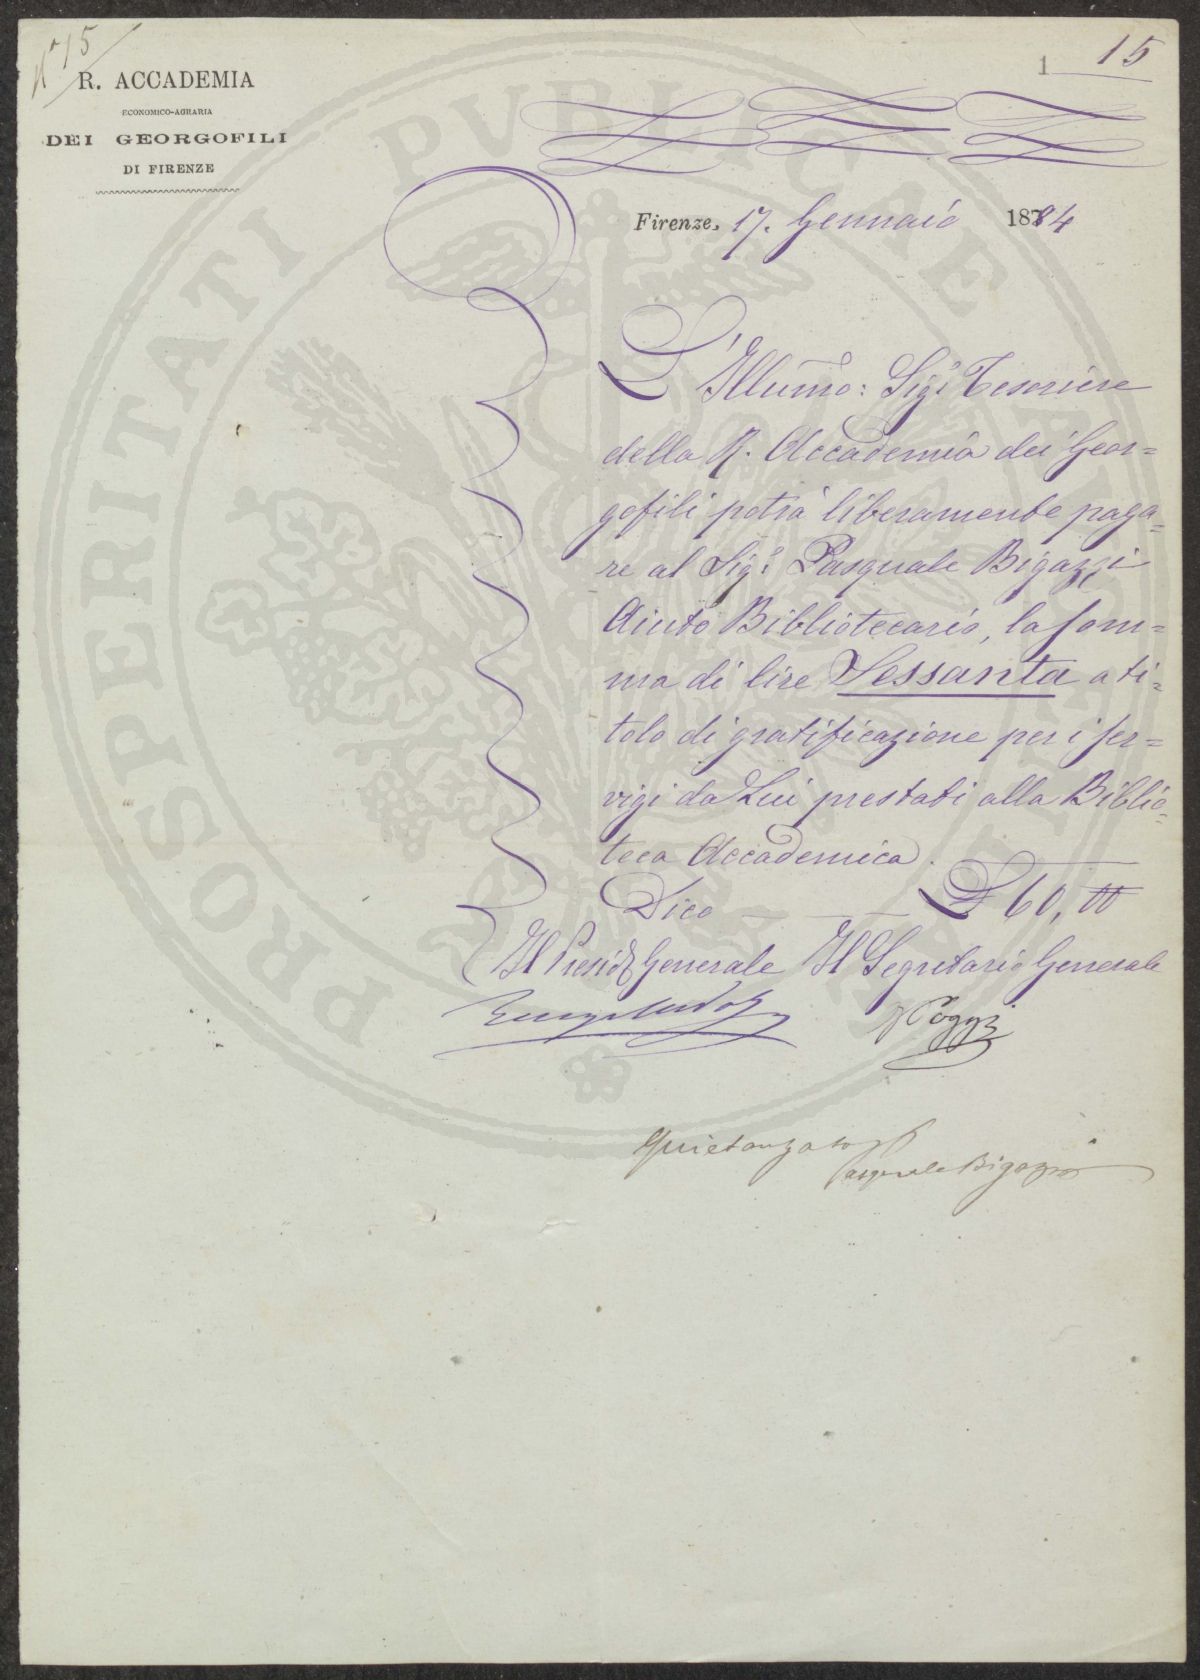 N° 15
1 15
R. ACCADEMIA
ECONOMICO-AGRARIA
DEI GEORGOFILI
DI FIRENZE
Firenze, 17. Gennaio 1884
L'Illumo: Sigr Tesoriere
della R. Accademia dei Geor=
gofili potrà liberamente paga=
re al Sigr Pasquale Bigazzi
Aiuto Bibliotecario, la som=
ma di lire Sessanta a ti=
tolo di gratificazione per i ser=
vigi da Lui prestati alla Biblio=
teca Accademica.
Dico L 60, 00
Il Presid Generale Il Segretario Generale
Poggi
Quietanza
Pasquale Bigazzi
PROSPERITATI PVBLICAE